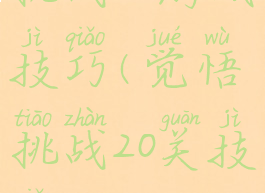 jì qiǎo jué wù
技巧(觉悟
tiāo zhàn guān jì
挑战20关技